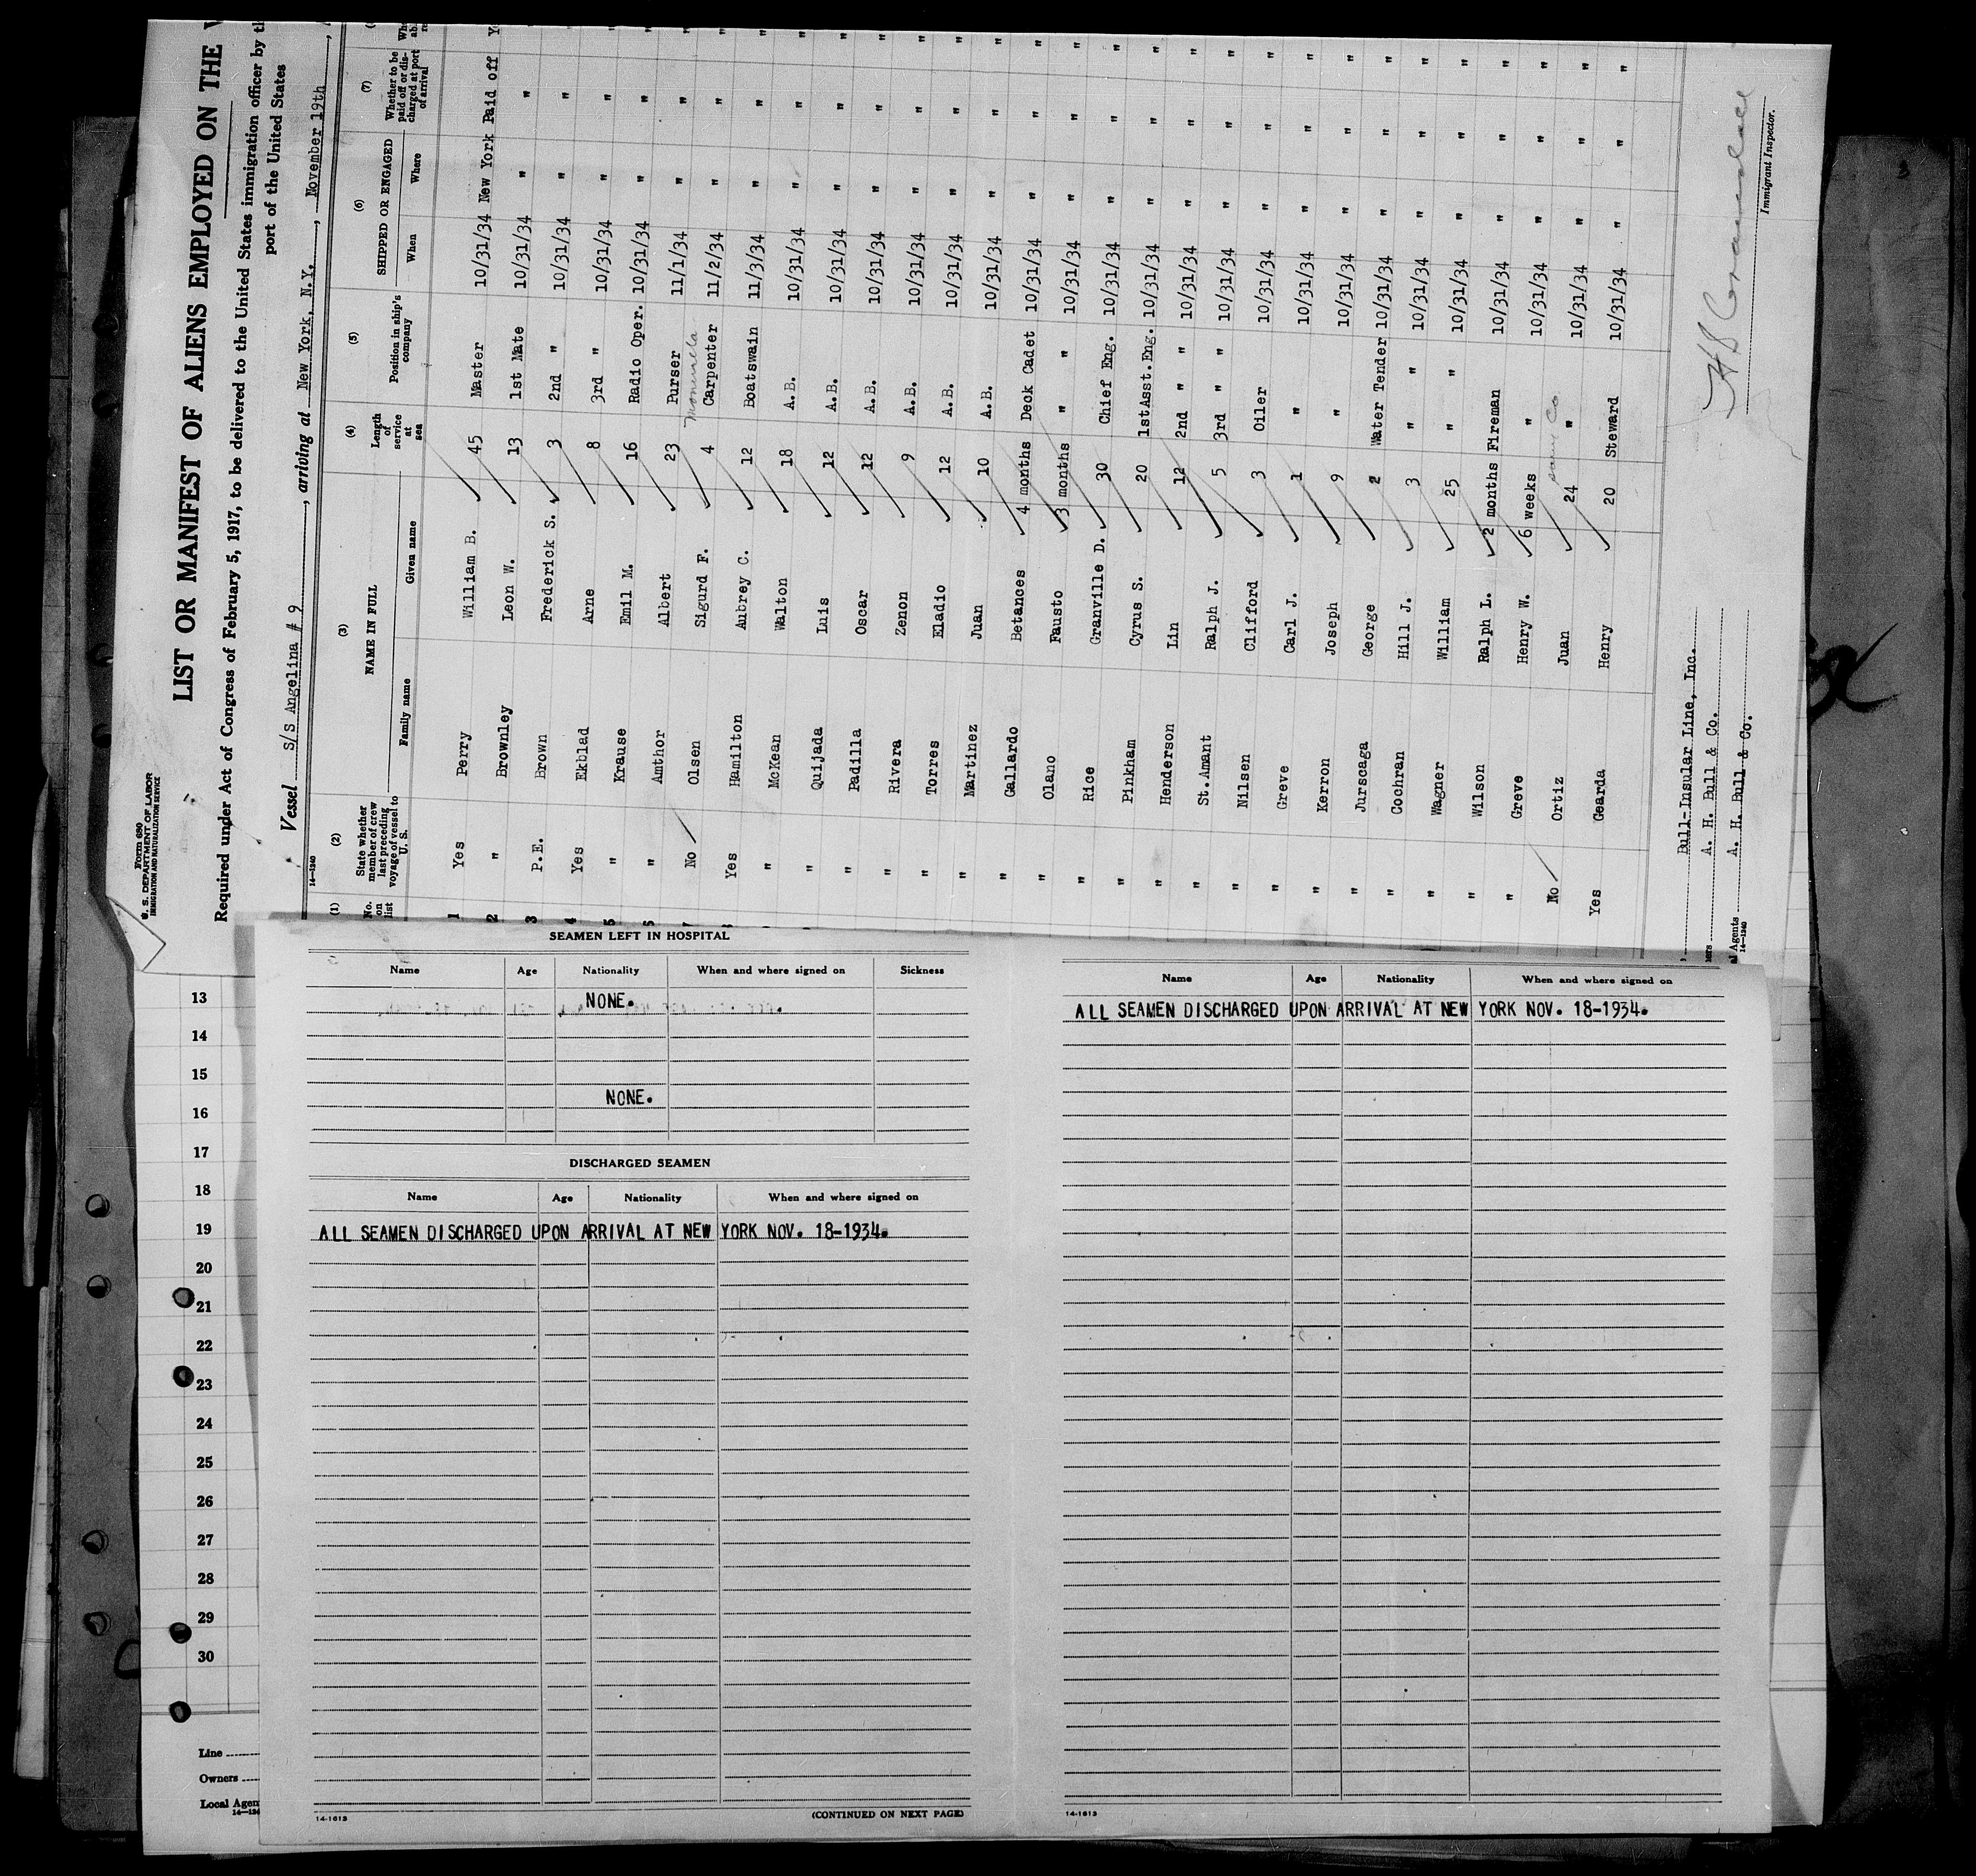 Form 680
U. S. DEPARTMENT OF LABOR
IMMIGRATION AND NATURALIZATION SERVICE
LIST OR MANIFEST OF ALIENS EMPLOYED ON THE
Required under Act of Congress of February 5, 1917, to be delivered to the United States immigration officer by
port of the United States
Vessel S/S Angelina # 9, arriving at New York, N.Y., November 19th,
14-1240
(1) (2) (3) (4) (5) (6) (7)
No. on list State whether member of crew last preceding voyage of vessel to U. S. NAME IN FULL Family name Given name Length of service at sea Position in ship's company SHIPPED OR ENGAGED When Where Whether to be paid off or discharged at port of arrival
1 Yes Perry William B. 45 Master 10/31/34 New York Paid off
2 " Brownley Leon W. 13 1st Mate 10/31/34 " "
3 P.E. Brown Frederick S. 3 2nd " 10/31/34 " "
4 Yes Ekblad Arne 8 3rd " 10/31/34 " "
5 " Krause Emil M. 16 Radio Oper. 10/31/34 " "
6 " Amthor Albert 23 Purser 11/1/34 " "
7 No Olsen Sigurd F. 4 Carpenter 11/2/34 " "
8 Yes Hamilton Aubrey C. 12 Boatswain 11/3/34 " "
" McKean Walton 18 A.B. 10/31/34 " "
" Quijada Luis 12 A.B. 10/31/34 " "
" Padilla Oscar 12 A.B. 10/31/34 " "
" Rivera Zenon 9 A.B. 10/31/34 " "
" Torres Eladio 12 A.B. 10/31/34 " "
" Martinez Juan 10 A.B. 10/31/34 " "
" Gallardo Betances 4 months Deck Cadet 10/31/34 " "
" Olano Fausto 3 months " " 10/31/34 " "
" Rice Granville D. 30 Chief Eng. 10/31/34 " "
" Pinkham Cyrus S. 20 1st Asst. Eng. 10/31/34 " "
" Henderson Lin 12 2nd " " 10/31/34 " "
" St.Amant Ralph J. 5 3rd " " 10/31/34 " "
" Nilsen Clifford 3 Oiler 10/31/34 " "
" Greve Carl J. 1 " 10/31/34 " "
" Kerron Joseph 9 " 10/31/34 " "
" Jurscaga George 2 Water Tender 10/31/34 " "
" Cochran Hill J. 3 " " 10/31/34 " "
" Wagner William 25 " " 10/31/34 " "
" Wilson Ralph L. 2 months Fireman 10/31/34 " "
" Greve Henry W. 6 weeks " 10/31/34 " "
No Ortiz Juan 24 same Co " 10/31/34 " "
Yes Gearda Henry 20 Steward 10/31/34 " "
Bull-Insular Line, Inc.
A. H. Bull & Co.
Agents A. H. Bull & Co.
14-1240
Immigrant Inspector.
SEAMEN LEFT IN HOSPITAL
Name Age Nationality When and where signed on Sickness
NONE.
NONE.
DISCHARGED SEAMEN
Name Age Nationality When and where signed on
ALL SEAMEN DISCHARGED UPON ARRIVAL AT NEW YORK NOV. 18-1934.
14-1613
(CONTINUED ON NEXT PAGE)
Name Age Nationality When and where signed on
ALL SEAMEN DISCHARGED UPON ARRIVAL AT NEW YORK NOV. 18-1934.
14-1613
13
14
15
16
17
18
19
20
21
22
23
24
25
26
27
28
29
30
Line
Owners
Local Agen